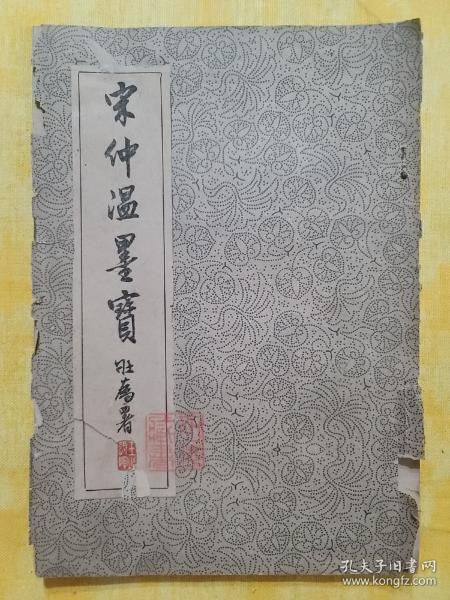 宋仲温墨寶
壯為署
藏書
孔夫子旧书网
www.kongfz.com